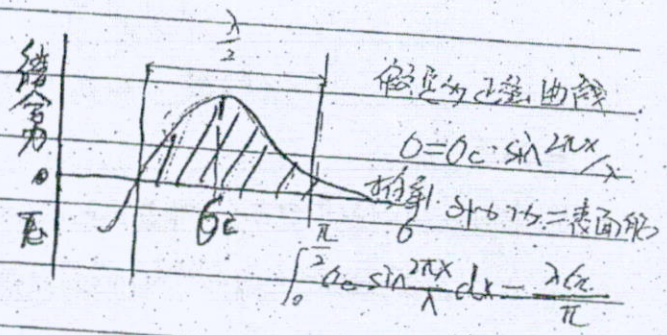 λ/2
结合力
假定为正弦曲线
σ=σc·sin 2πx/λ
σc
π
σ
=表面能
∫₀^2 σc sin 2πx/λ dx = λσc/π